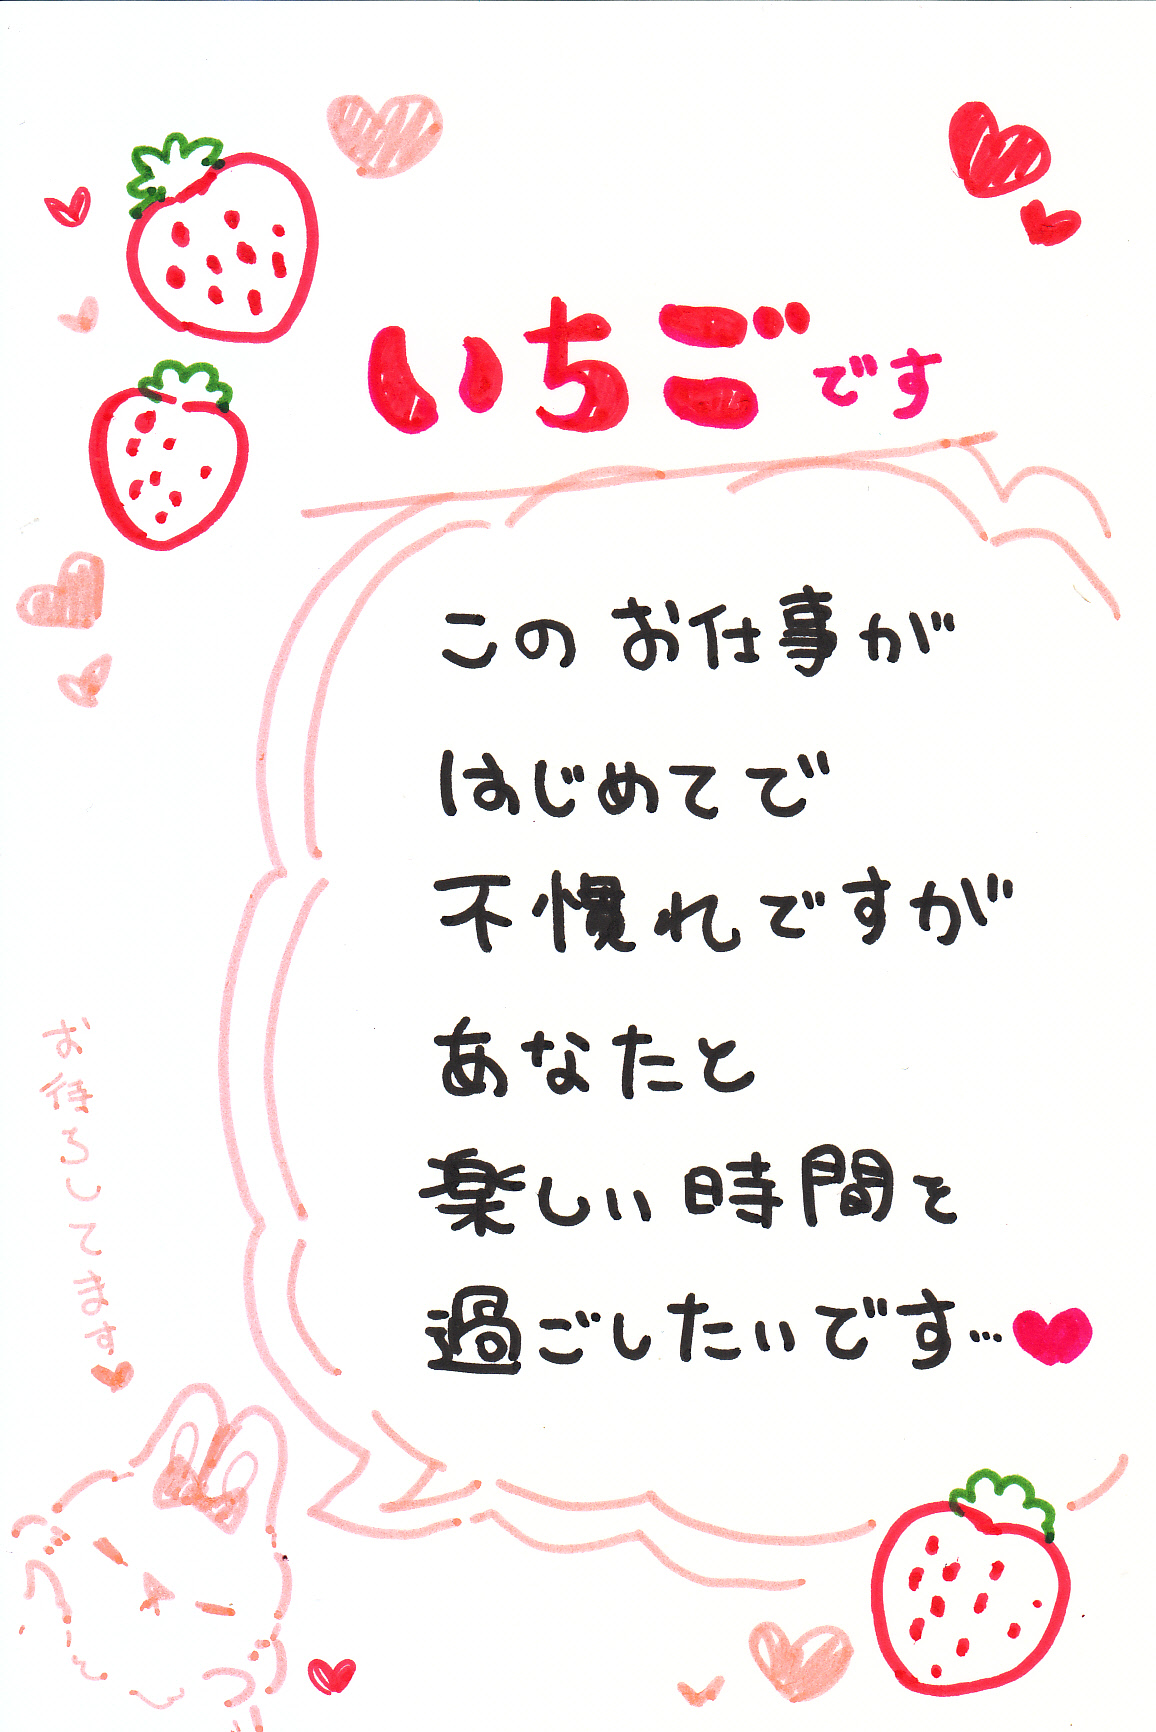 いちごです
このお仕事が
はじめてで
不慣れですが
あなたと
楽しい時間を
過ごしたいです…
お待ちしてます